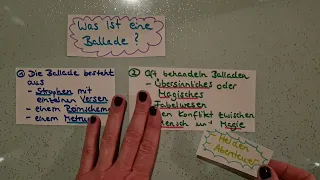 Was ist eine
Ballade?
① Die Ballade besteht
aus
- Strophen mit
einzelnen Versen
- einem Reimschema
- einem Metru
② Oft behandeln Balladen
- Übersinnliches oder
Magisches
Fabelwesen
en Konflikt zwischen
Mensch und Magie
Helden
Abenteuer